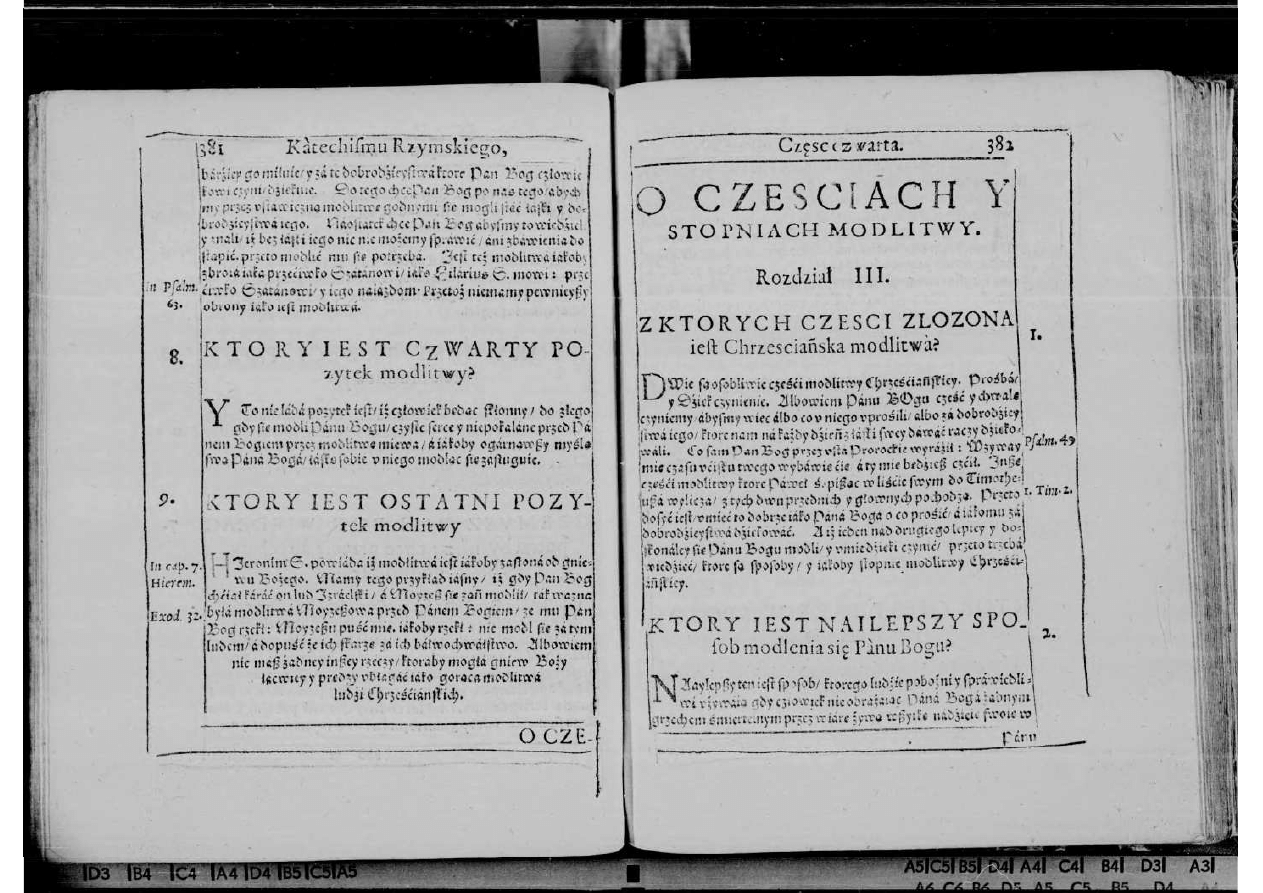 381 Kàtechiſmu Rzymskiego,
bárźiey go miłuie/ y zá te dobrodźieyſtwá ktore Pan Bog człowie
kowi czyni/ dźiękuie. Do tego chce Pan Bog po nas tego/ ábych
my przez vſtáwiczną modlitwę godnymi ſie mogli ſtáć łáſki y do-
brodźieyſtwá iego. Náoſtátek chce Pan Bog ábyſmy to wiedźieli
y ználi/ iż bez łáſki iego nic nie możemy ſpráwić/ áni zbáwienia do
ſtąpić. przeto modlić mu ſie potrzebá. Jeſt też modlitwá iákoby
zbroiá iáka przećiwko Szátánowi/ iáko Hilarius S. mowi: prze
ćiwko Szátánowi/ y iego náiázdom. Przetoż niemamy pewnieyßy
obrony iáko ieſt modlitwá.
in Pſalm.
63.
8. KTORY IEST CzWARTY PO-
zytek modlitwy?
Y To nie ládá pożytek ieſt/ iż człowiek będąc ſkłonny/ do złego
gdy ſie modli Pánu Bogu/ czyſte ſerce y niepokaláne przed Pá
nem Bogiem przez modlitwę miewa/ á iákoby ogárnąwßy myślą
ſwą Páná Bogá/ łáſkę ſobie v niego modląc ſie záſługuie.
9. KTORY IEST OSTATNI POZY-
tek modlitwy
HJeronim S. powiáda iż modlitwá ieſt iákoby zaſłoná od gnie-
wu Bożego. Mamy tego przykład iáſny/ iż gdy Pan Bog
chćiał káráć on lud Izráelſki/ á Moyżeß ſie zań modlił/ ták ważna
byłá modlitwá Moyżeßowá przed Pánem Bogiem/ że mu Pan
Bog rzekł: Moyżeßu puść mie. iákoby rzekł: nie modl ſie zá tym
ludem/ á dopuść że ich ſkarzę zá ich báłwochwálſtwo. Albowiem
nie máß żadney inßey rzeczy/ ktoraby mogłá gniew Boży
łácwiey y prędzey vbłágáć iáko gorąca modlitwá
ludźi Chrześćiáńſkich.
In cap. 7.
Hierem.
Exod. 32.
O CZE-
Częſc czwarta. 382
O CZESCIACH Y
STOPNIACH MODLITWY.
Rozdział III.
Z KTORYCH CZESCI ZLOZONA
ieſt Chrzesciańska modlitwa?
1.
DWie ſą oſobliwie częśći modlitwy Chrześćiáńſkiey. Prośbá/
y Dźięk czynienie. Albowiem Pánu BOgu cześć y chwałę
czyniemy/ ábyſmy więc álbo co v niego vprośili/ álbo zá dobrodźiey
ſtwá iego/ ktore nam ná káżdy dźień z łáſki ſwey dáwáć raczy dźięko-
wáli. Co ſam Pan Bog przez vſtá Prorockie wyráźił: Wzyway
mię czáſu vćiſku twego wybáwię ćię á ty mię będźieß czćił. Inße
częśći modlitwy ktore Páweł ś. pißąc w liśćie ſwym do Timothe-
ußá wylicza/ z tych dwu przednich y głownych pochodzą. Przeto
dosyć ieſt/ vmieć to dobrze iáko Páná Bogá o co prośić/ á iákomu zá
dobrodźieyſtwá dźiękowáć. A iż ieden nád drugiego lepiey y do-
ſkonáley ſie Pánu Bogu modli/ y vmie dźięki czynić/ przeto trzebá
wiedźieć/ ktore ſą ſpoſoby/ y iákoby ſtopnie modlitwy Chrześći-
áńſkiey.
Pſalm. 49
1. Tim. 2.
KTORY IEST NAILEPSZY SPO-
ſob modlenia się Pànu Bogu?
2.
NAylepßy ten ieſt ſpoſob/ ktorego ludźie pobożni y ſpráwiedli-
wi vżywáią gdy człowiek nie obrażáiąc Páná Bogá żadnym
grzechem śmiertelnym przez wiárę żywą wßyſtkę nádźieię ſwoię w
Pánu
D3 B4 C4 A4 D4 B5 C5 A5
A5 C5 B5 D4 A4 C4 B4 D3 A3
A6 C6 B6 D5 A5 C5 B5 D4